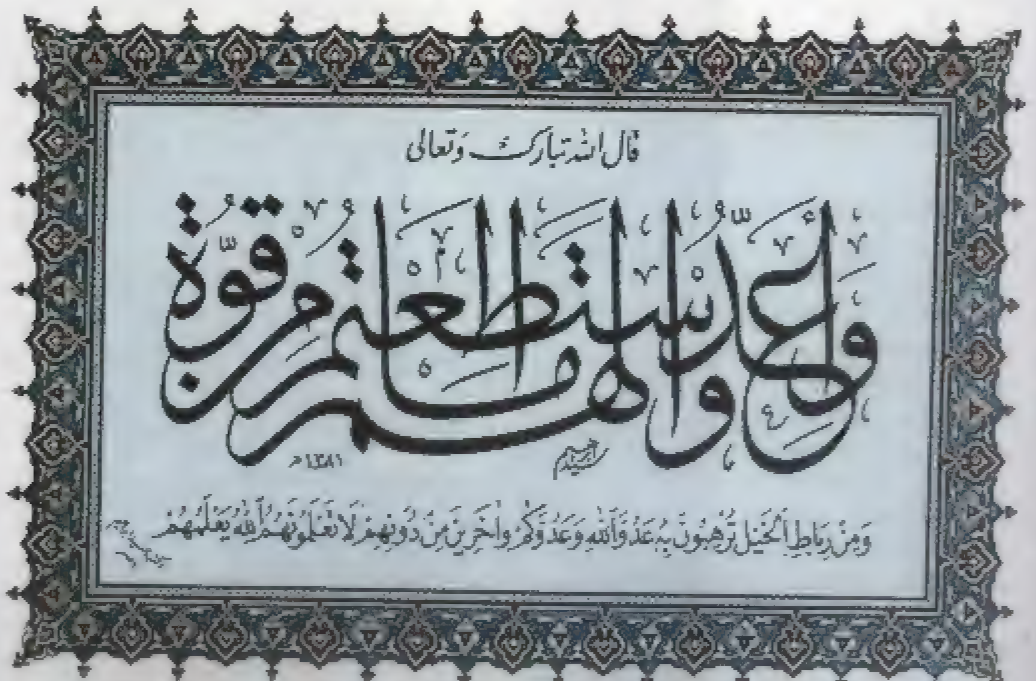 قال الله تبارك وَتعالى
وَأَعِدُّوا لَهُم مَّا اسْتَطَعْتُم مِّن قُوَّةٍ
سيد إبراهيم
١٣٨١ هـ
وَمِنْ رِبَاطِ الْخَيْلِ تُرْهِبُونَ بِهِ عَدُوَّ اللهِ وَعَدُوَّكُمْ وَآخَرِينَ مِنْ دُونِهِمْ لَا تَعْلَمُونَهُمُ اللهُ يَعْلَمُهُمْ